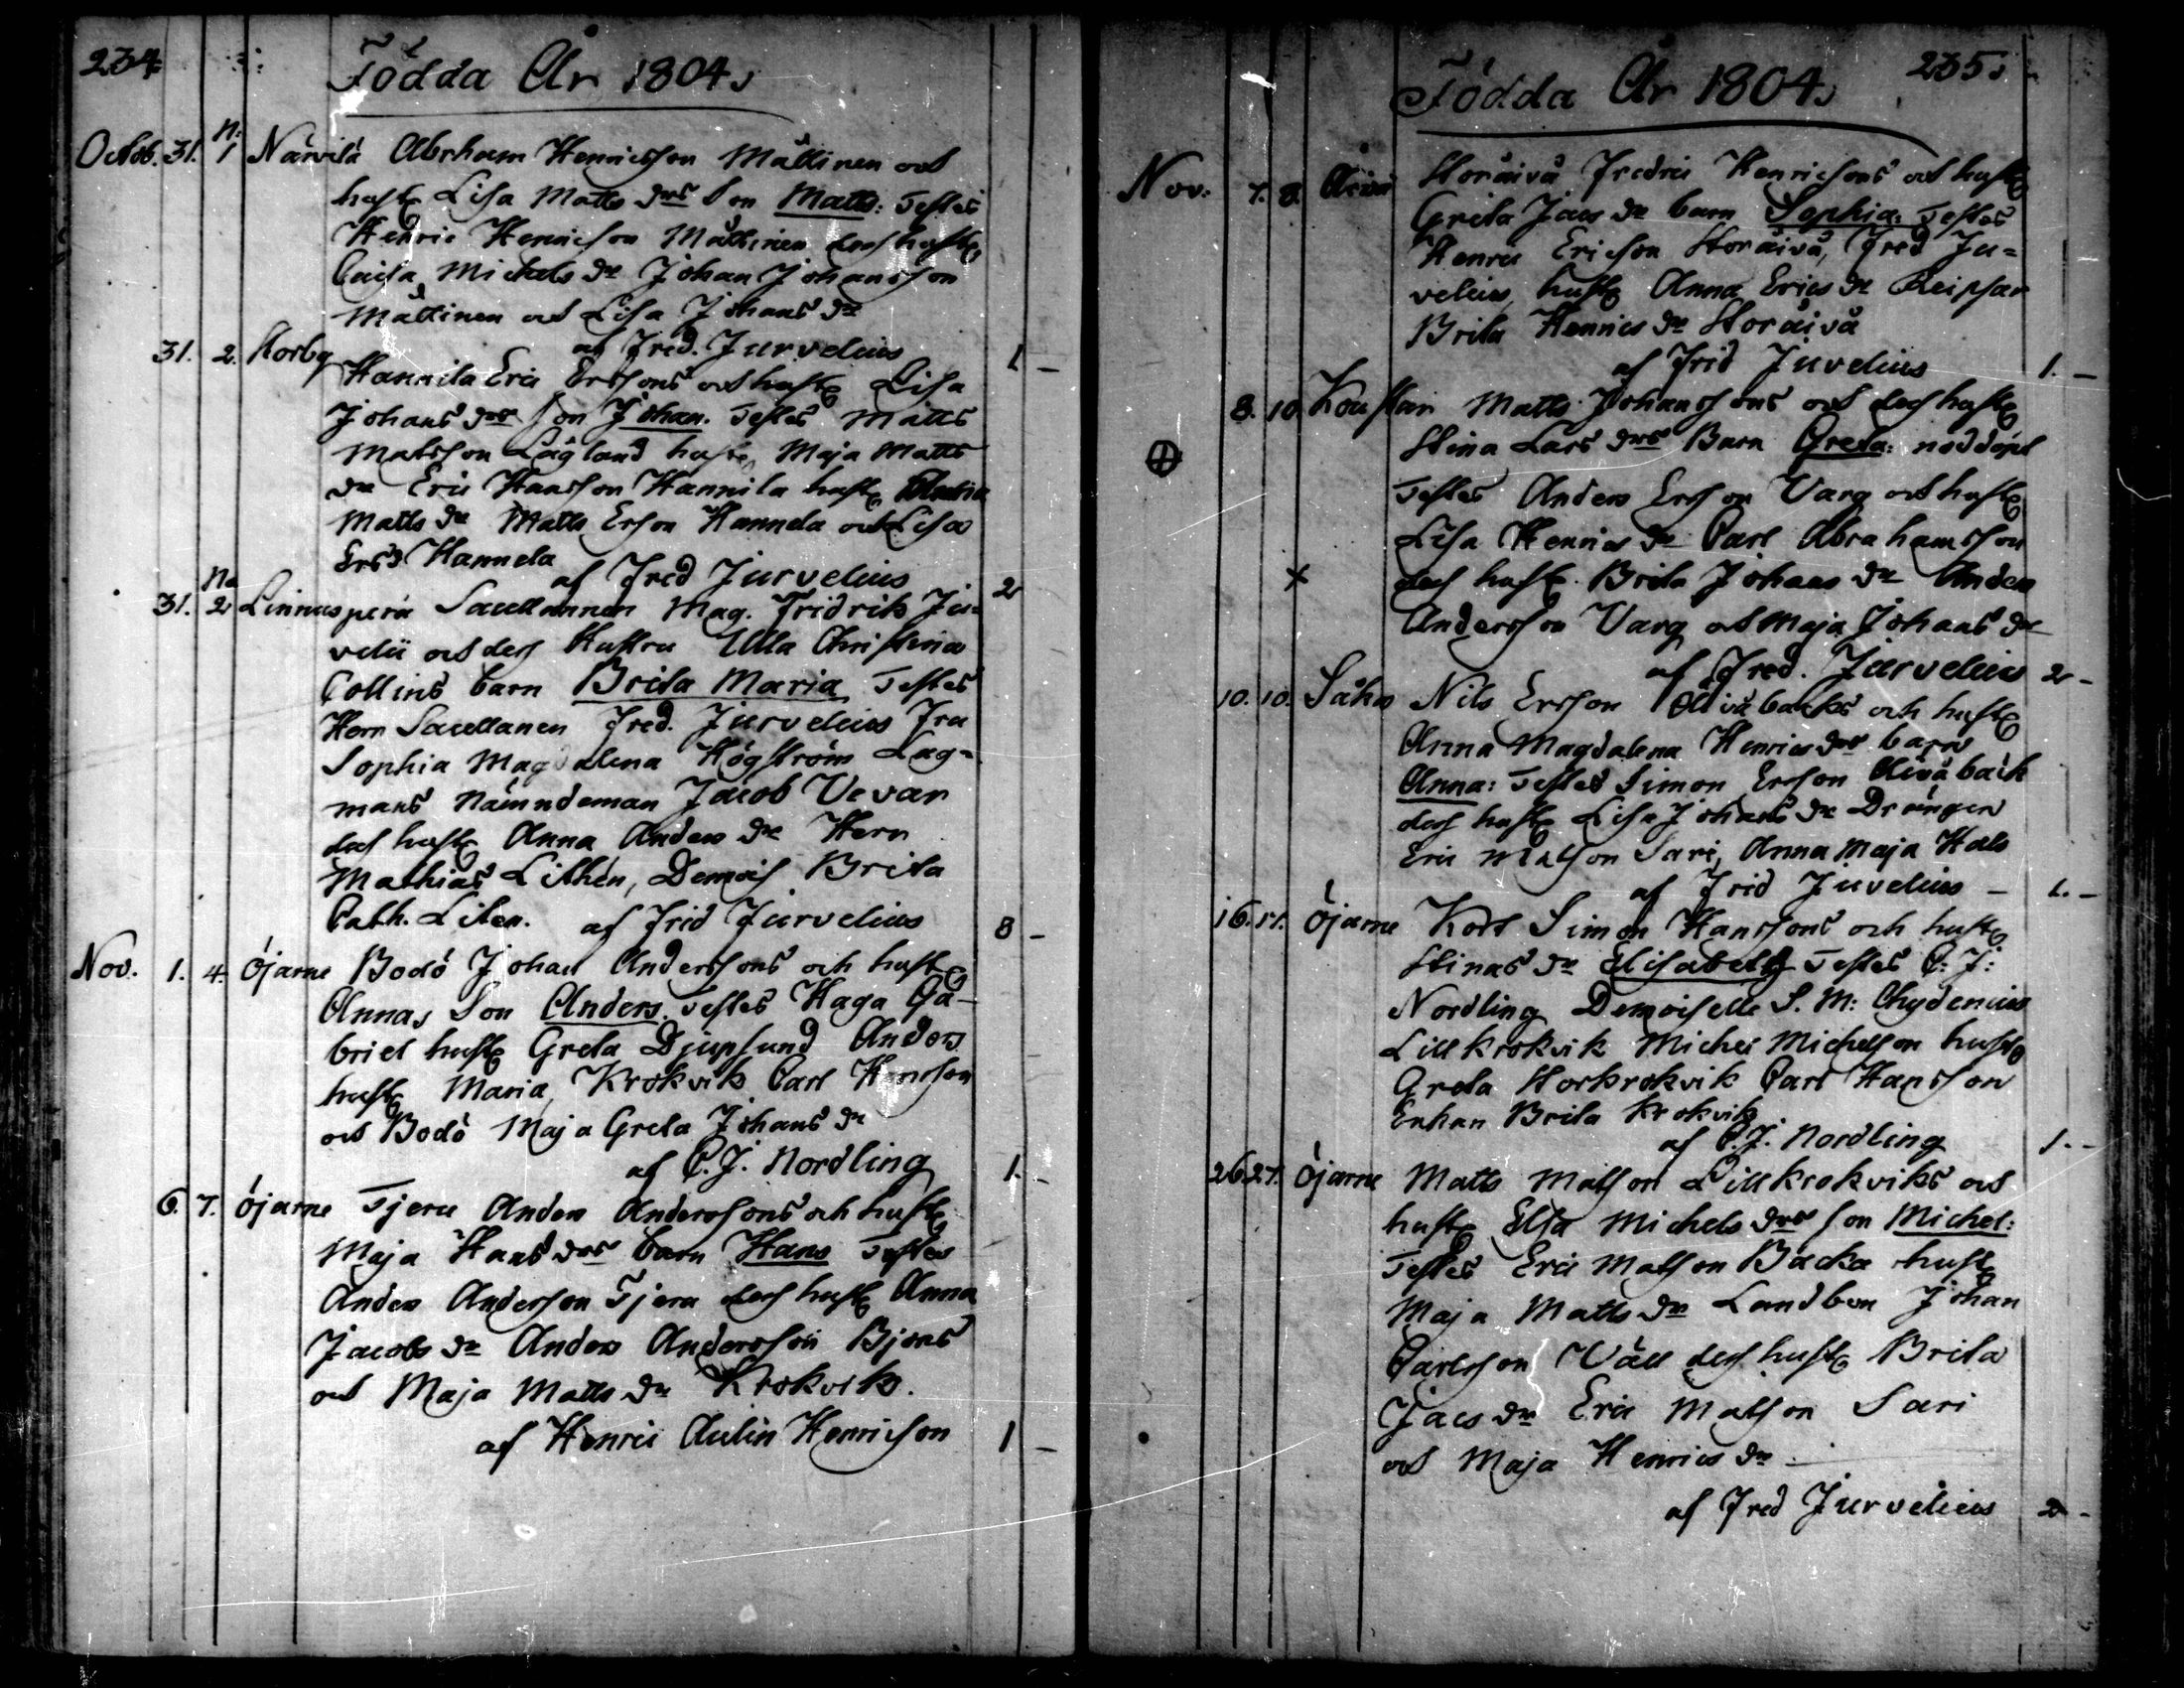 234.
Födda År 1804.
Octob. 31. N: 1 Närvilä Abrham Henricsson Måttinen och
hust. Lisa Matts drs Son Matts: Testes
Hendric Henricson Måttinen des hust.
Caisa Michels dr Johan Johansson
Måttinen och Lisa Johans dr
af Fred. Jurvelius
31. 2. Storby Hannila Eric Ersons och hust. Lisa 1 –
Johans drs son Johan. Testes Matts
Matsson Lågland hust. Maja Matts
dr Eric Hansson Hannila hust.
Matts dr Matts Erson Hannela och Lisa
Ers d Hannela
af Fred Jurvelius 2
31. No 2 Linnusperä Sacellannen Mag. Fridrik Ju-
velii och des Hustru Ulla Christina
Collins barn Brita Maria Testes
Herr Sacellanen Fred. Jurvelius Fru
Sophia Magdalena Högström Lag-
mans Nämndeman Jacob Vevar
des hust. Anna Anders dr Herr
Mathias Lithén, Demois. Brita
Cath. Liten. af Frid Jurvelius 8 –
Nov. 1. 4. Öjarne Bodö Johan Anderssons och hust.
Annas Son Anders. Testes Haga Ga-
briel hust. Greta Djupsund Anders
hust. Maria, Krokvik Carl Henrson
och Bodö Maja Greta Johans dr
af C.J. Nordling 1. –
6. 7. Öjarne Tjeru Anders Anderssons och hust.
Maja Hans drs barn Hans Testes
Anders Anderson Tjeru des hust. Anna
Jacobs dr Anders Andersson Bjons
och Maja Matts dr Krokvik.
af Henric Aulin Henricson 1 –
235.
Födda År 1804.
Nov. 7. 8. Åivå Storåivå Fredric Henricsons och hust.
Greta Jacs dr barn Sophia. Testes
Henric Ericson Storåivå, Fred Ju=
velius, hust. Anna Erics dr Reipsar
Brita Henrics dr Storåivå
af Frid Juvelius 1. –
8. 10. Koustar Matts Johanssons och des hust.
Stina Lars drs Barn Greta: nöddöpt
Testes Anders Ersson Varg och hust.
Lisa Henrics dr Carl Abrahamsson
des hust. Brita Johans dr Anders
Andersson Varg och Maja Johans dr
af Fred. Jurvelius 2 –
10. 10. Såka Nils Ersson Åivåbacks och hust.
Anna Magdalena Henrics drs barn
Anna: Testes Simon Ersson Åivåback
des hust. Lisa Johans dr Drängen
Eric Matson Sari, Anna Maja Hals
af Frid Juvelius – 1. –
16. 17. Öjarne Kort Simon Hanssons och hust.
Stinas dr Elisabeth Testes C: J:
Nordling Demoiselle S. M: Chydenius
Lillkrokvik Michel Michelson hust.
Greta Storkrokvik Carl Hansson
Enkan Brita Krokvik
af C.J. Nordling 1. –
26. 27. Öjarne Matts Matson Lillkrokviks och
hust. Elsa Michels drs son Michel:
Testes Eric Matson Backa hust.
Maja Matts dr Landbon Johan
Carlsson Väll des hust. Brita
Jacs dr Eric Matson Sari
och Maja Henrics dr
af Fred Jurvelius 2 –